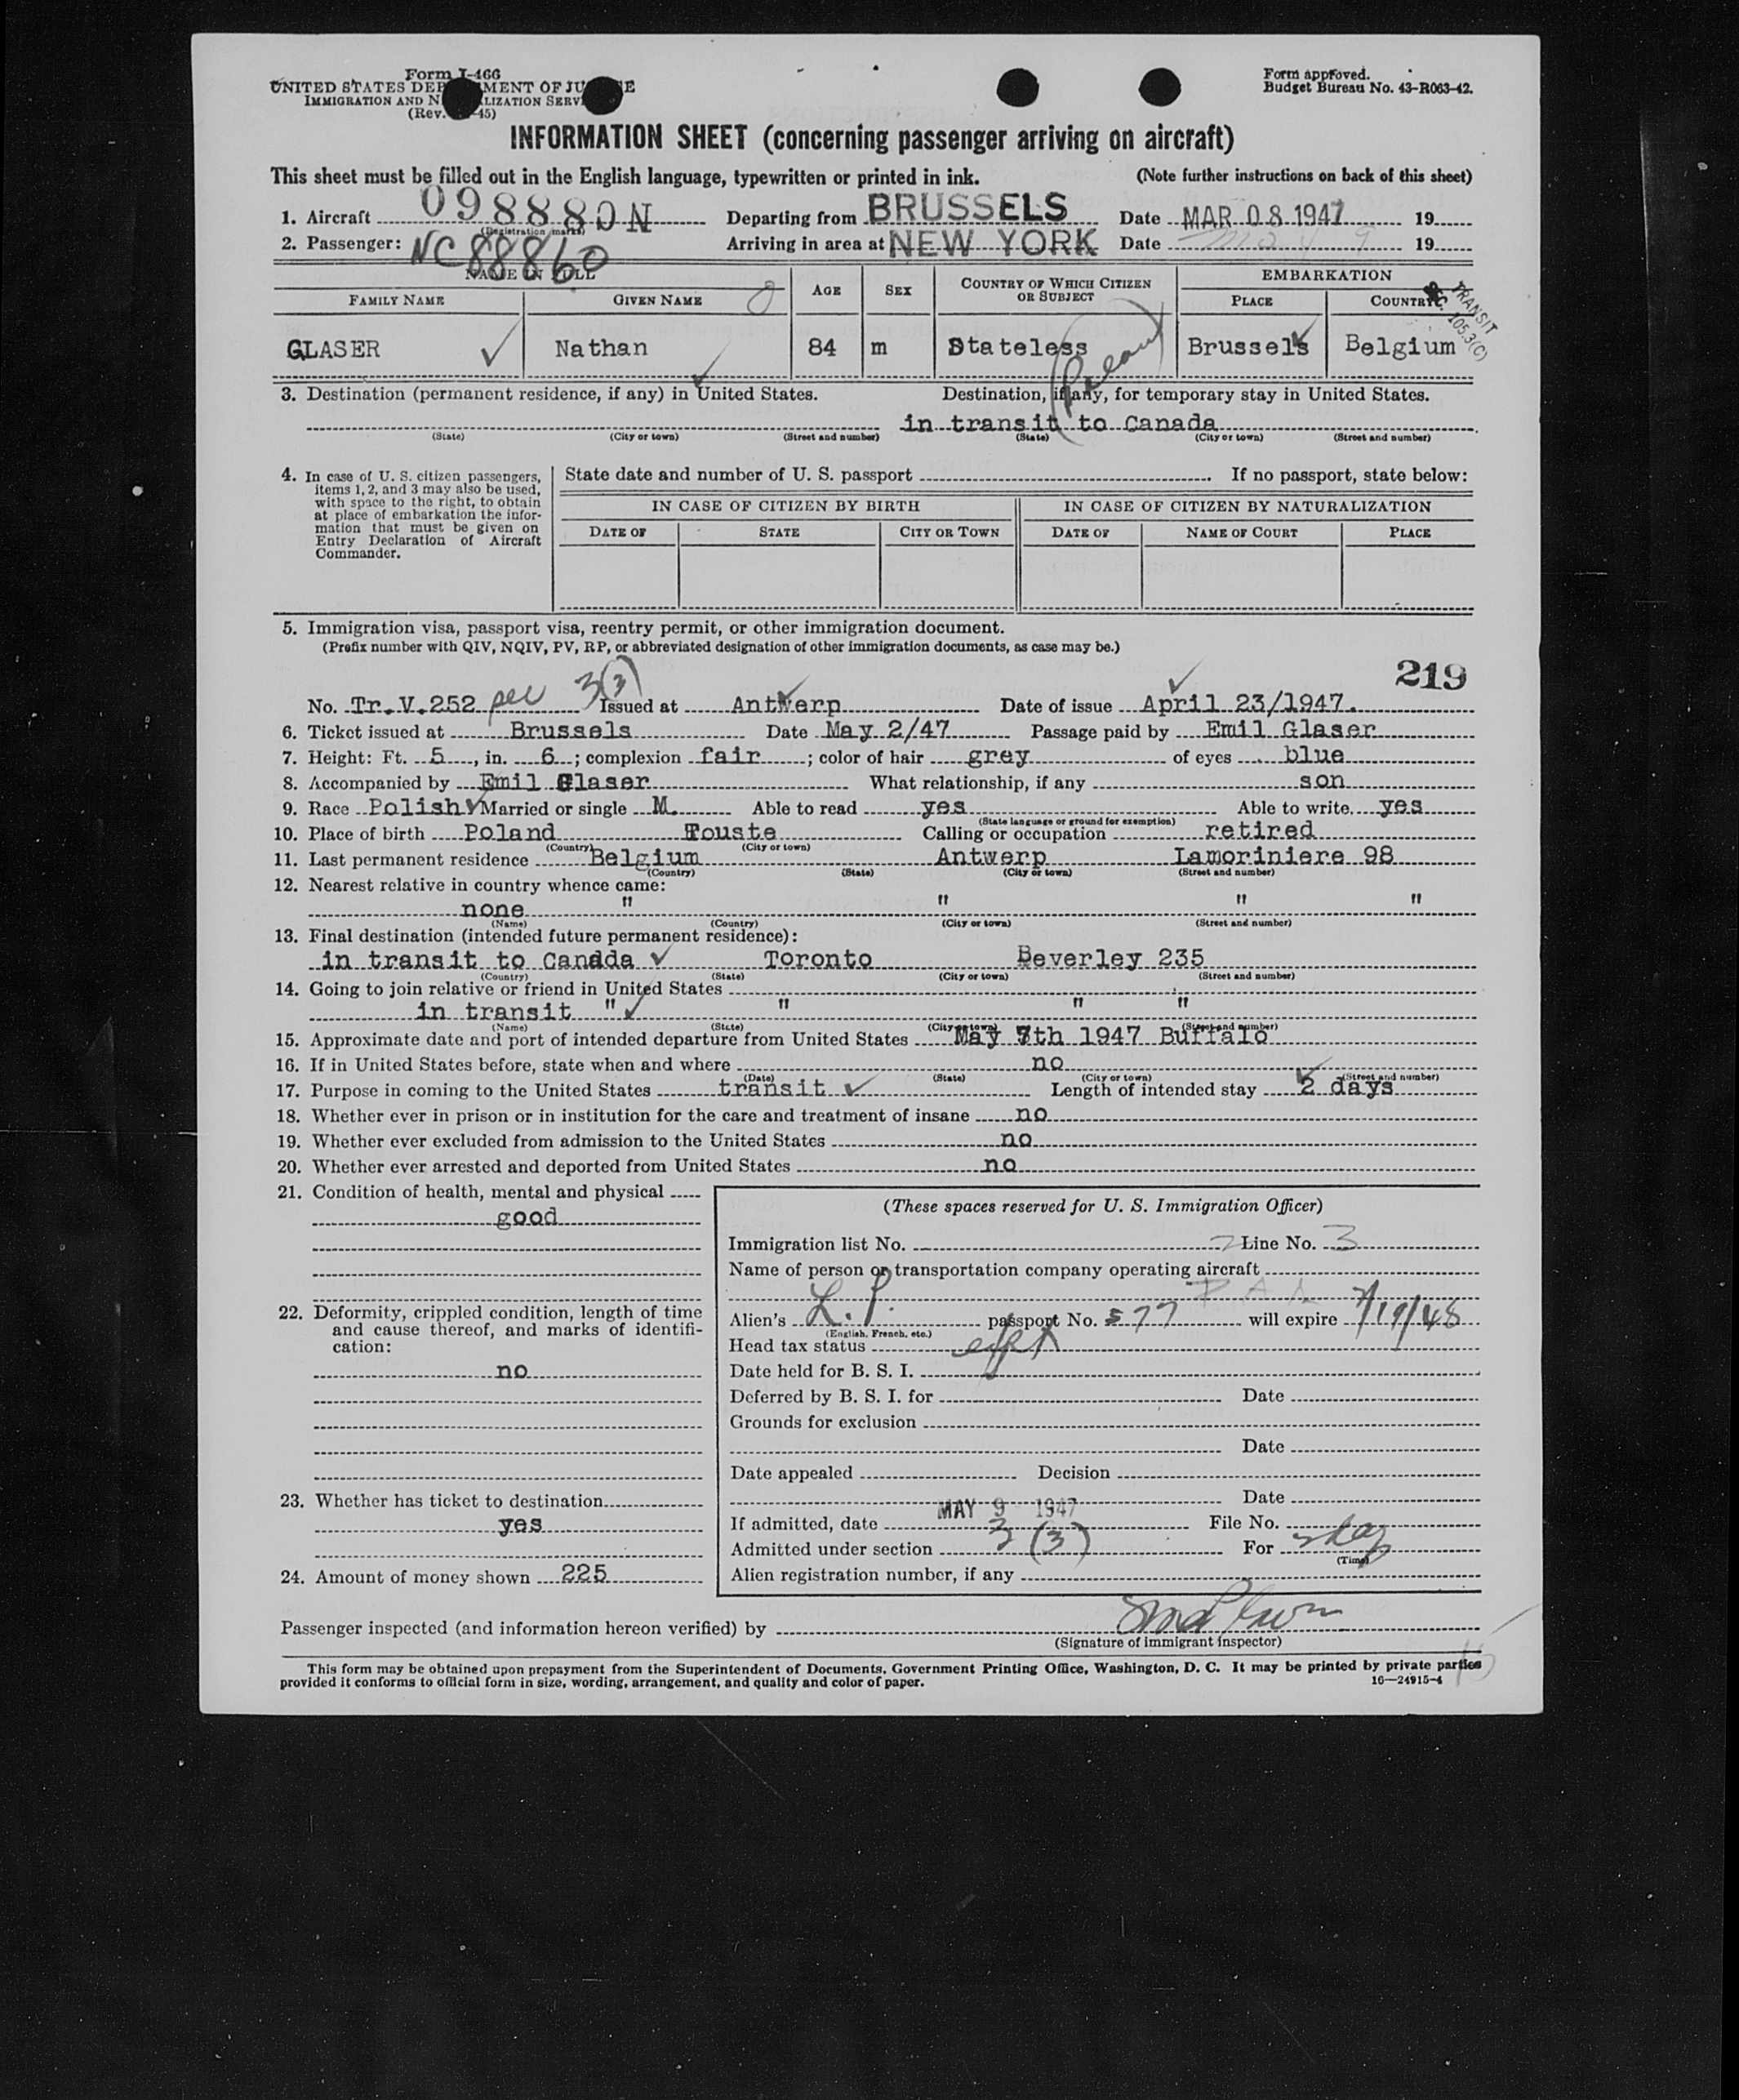 Form I-466
UNITED STATES DEPARTMENT OF JUSTICE
IMMIGRATION AND NATURALIZATION SERVICE
(Rev. 45)
Form approved.
Budget Bureau No. 43-R063-42.
INFORMATION SHEET (concerning passenger arriving on aircraft)
This sheet must be filled out in the English language, typewritten or printed in ink. (Note further instructions on back of this sheet)
1. Aircraft 098880N Departing from BRUSSELS Date MAR 08 1947 19
(Registration marks)
2. Passenger: NC 88860 Arriving in area at NEW YORK Date May 9 19
NAME IN FULL AGE SEX COUNTRY OF WHICH CITIZEN OR SUBJECT EMBARKATION
FAMILY NAME GIVEN NAME PLACE COUNTRY
TRANSIT
SEC. 105.3(C)
GLASER Nathan 84 m Stateless Brussels Belgium
3. Destination (permanent residence, if any) in United States. Destination, if any, for temporary stay in United States.
in transit to Canada
(State) (City or town) (Street and number) (State) (City or town) (Street and number)
4. In case of U. S. citizen passengers, items 1, 2, and 3 may also be used, with space to the right, to obtain at place of embarkation the information that must be given on Entry Declaration of Aircraft Commander.
State date and number of U. S. passport If no passport, state below:
IN CASE OF CITIZEN BY BIRTH IN CASE OF CITIZEN BY NATURALIZATION
DATE OF STATE CITY OR TOWN DATE OF NAME OF COURT PLACE
5. Immigration visa, passport visa, reentry permit, or other immigration document.
(Prefix number with QIV, NQIV, PV, RP, or abbreviated designation of other immigration documents, as case may be.)
219
No. Tr.V.252 sec 3(3) Issued at Antwerp Date of issue April 23/1947.
6. Ticket issued at Brussels Date May 2/47 Passage paid by Emil Glaser
7. Height: Ft. 5, in. 6; complexion fair; color of hair grey of eyes blue
8. Accompanied by Emil Glaser What relationship, if any son
9. Race Polish Married or single M. Able to read yes Able to write yes
(State language or ground for exemption)
10. Place of birth Poland Touste Calling or occupation retired
(Country) (City or town)
11. Last permanent residence Belgium Antwerp Lamoriniere 98
(Country) (State) (City or town) (Street and number)
12. Nearest relative in country whence came:
none " " " "
(Name) (Country) (City or town) (Street and number)
13. Final destination (intended future permanent residence):
in transit to Canada Toronto Beverley 235
(Country) (State) (City or town) (Street and number)
14. Going to join relative or friend in United States
in transit " " " "
(Name) (State) (City or town) (Street and number)
15. Approximate date and port of intended departure from United States May 7th 1947 Buffalo
16. If in United States before, state when and where no
(Date) (State) (City or town) (Street and number)
17. Purpose in coming to the United States transit Length of intended stay 2 days
18. Whether ever in prison or in institution for the care and treatment of insane no
19. Whether ever excluded from admission to the United States no
20. Whether ever arrested and deported from United States no
21. Condition of health, mental and physical
good
22. Deformity, crippled condition, length of time and cause thereof, and marks of identification:
no
23. Whether has ticket to destination
yes
24. Amount of money shown 225
(These spaces reserved for U. S. Immigration Officer)
Immigration list No. 2 Line No. 3
Name of person or transportation company operating aircraft
P A A
Alien's L.P. passport No. 577 will expire 7/19/48
(English, French, etc.)
Head tax status
Date held for B. S. I.
Deferred by B. S. I. for Date
Grounds for exclusion
Date
Date appealed Decision
Date
If admitted, date MAY 9 1947 File No.
Admitted under section 3 (3) For
(Time)
Alien registration number, if any
Passenger inspected (and information hereon verified) by
(Signature of immigrant inspector)
This form may be obtained upon prepayment from the Superintendent of Documents, Government Printing Office, Washington, D. C. It may be printed by private parties
provided it conforms to official form in size, wording, arrangement, and quality and color of paper. 16—24915-4